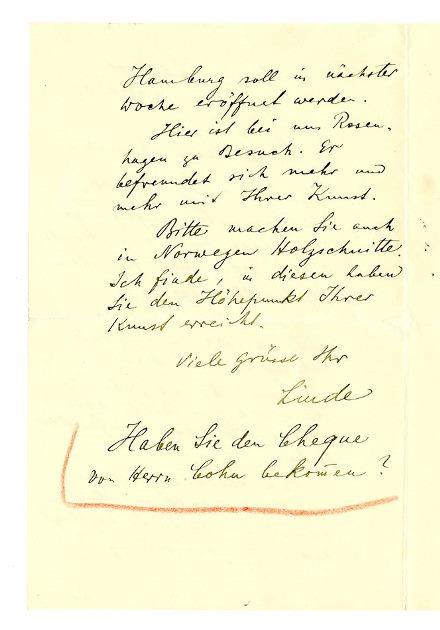 Hamburg soll in nächster
Woche eröffnet werden.
Hier ist bei uns Rosen-
hagen zu Besuch. Er
befreundet sich mehr und
mehr mit Ihrer Kunst.
Bitte machen Sie auch
in Norwegen Holzschnitte.
Ich finde, in diesen haben
Sie den Höhepunkt Ihrer
Kunst erreicht.
Viele grüsse Ihr
Linde
Haben Sie den Cheque
von Herrn Cohn bekom̅en?